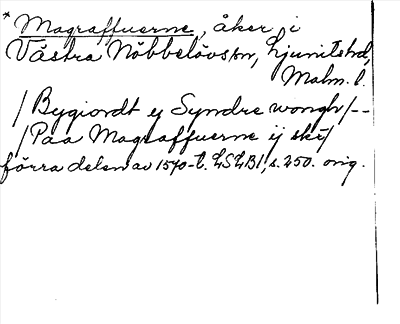 * Magraffuerne, åker i
Västra Nöbbelövs sn, Ljunits hd,
Malm. l.
/Bygiordt ej Syndre wongh/--
/Paa Magraffuerne ij ske/
förra delen av 1570-t. LSLB1, s. 250. orig.